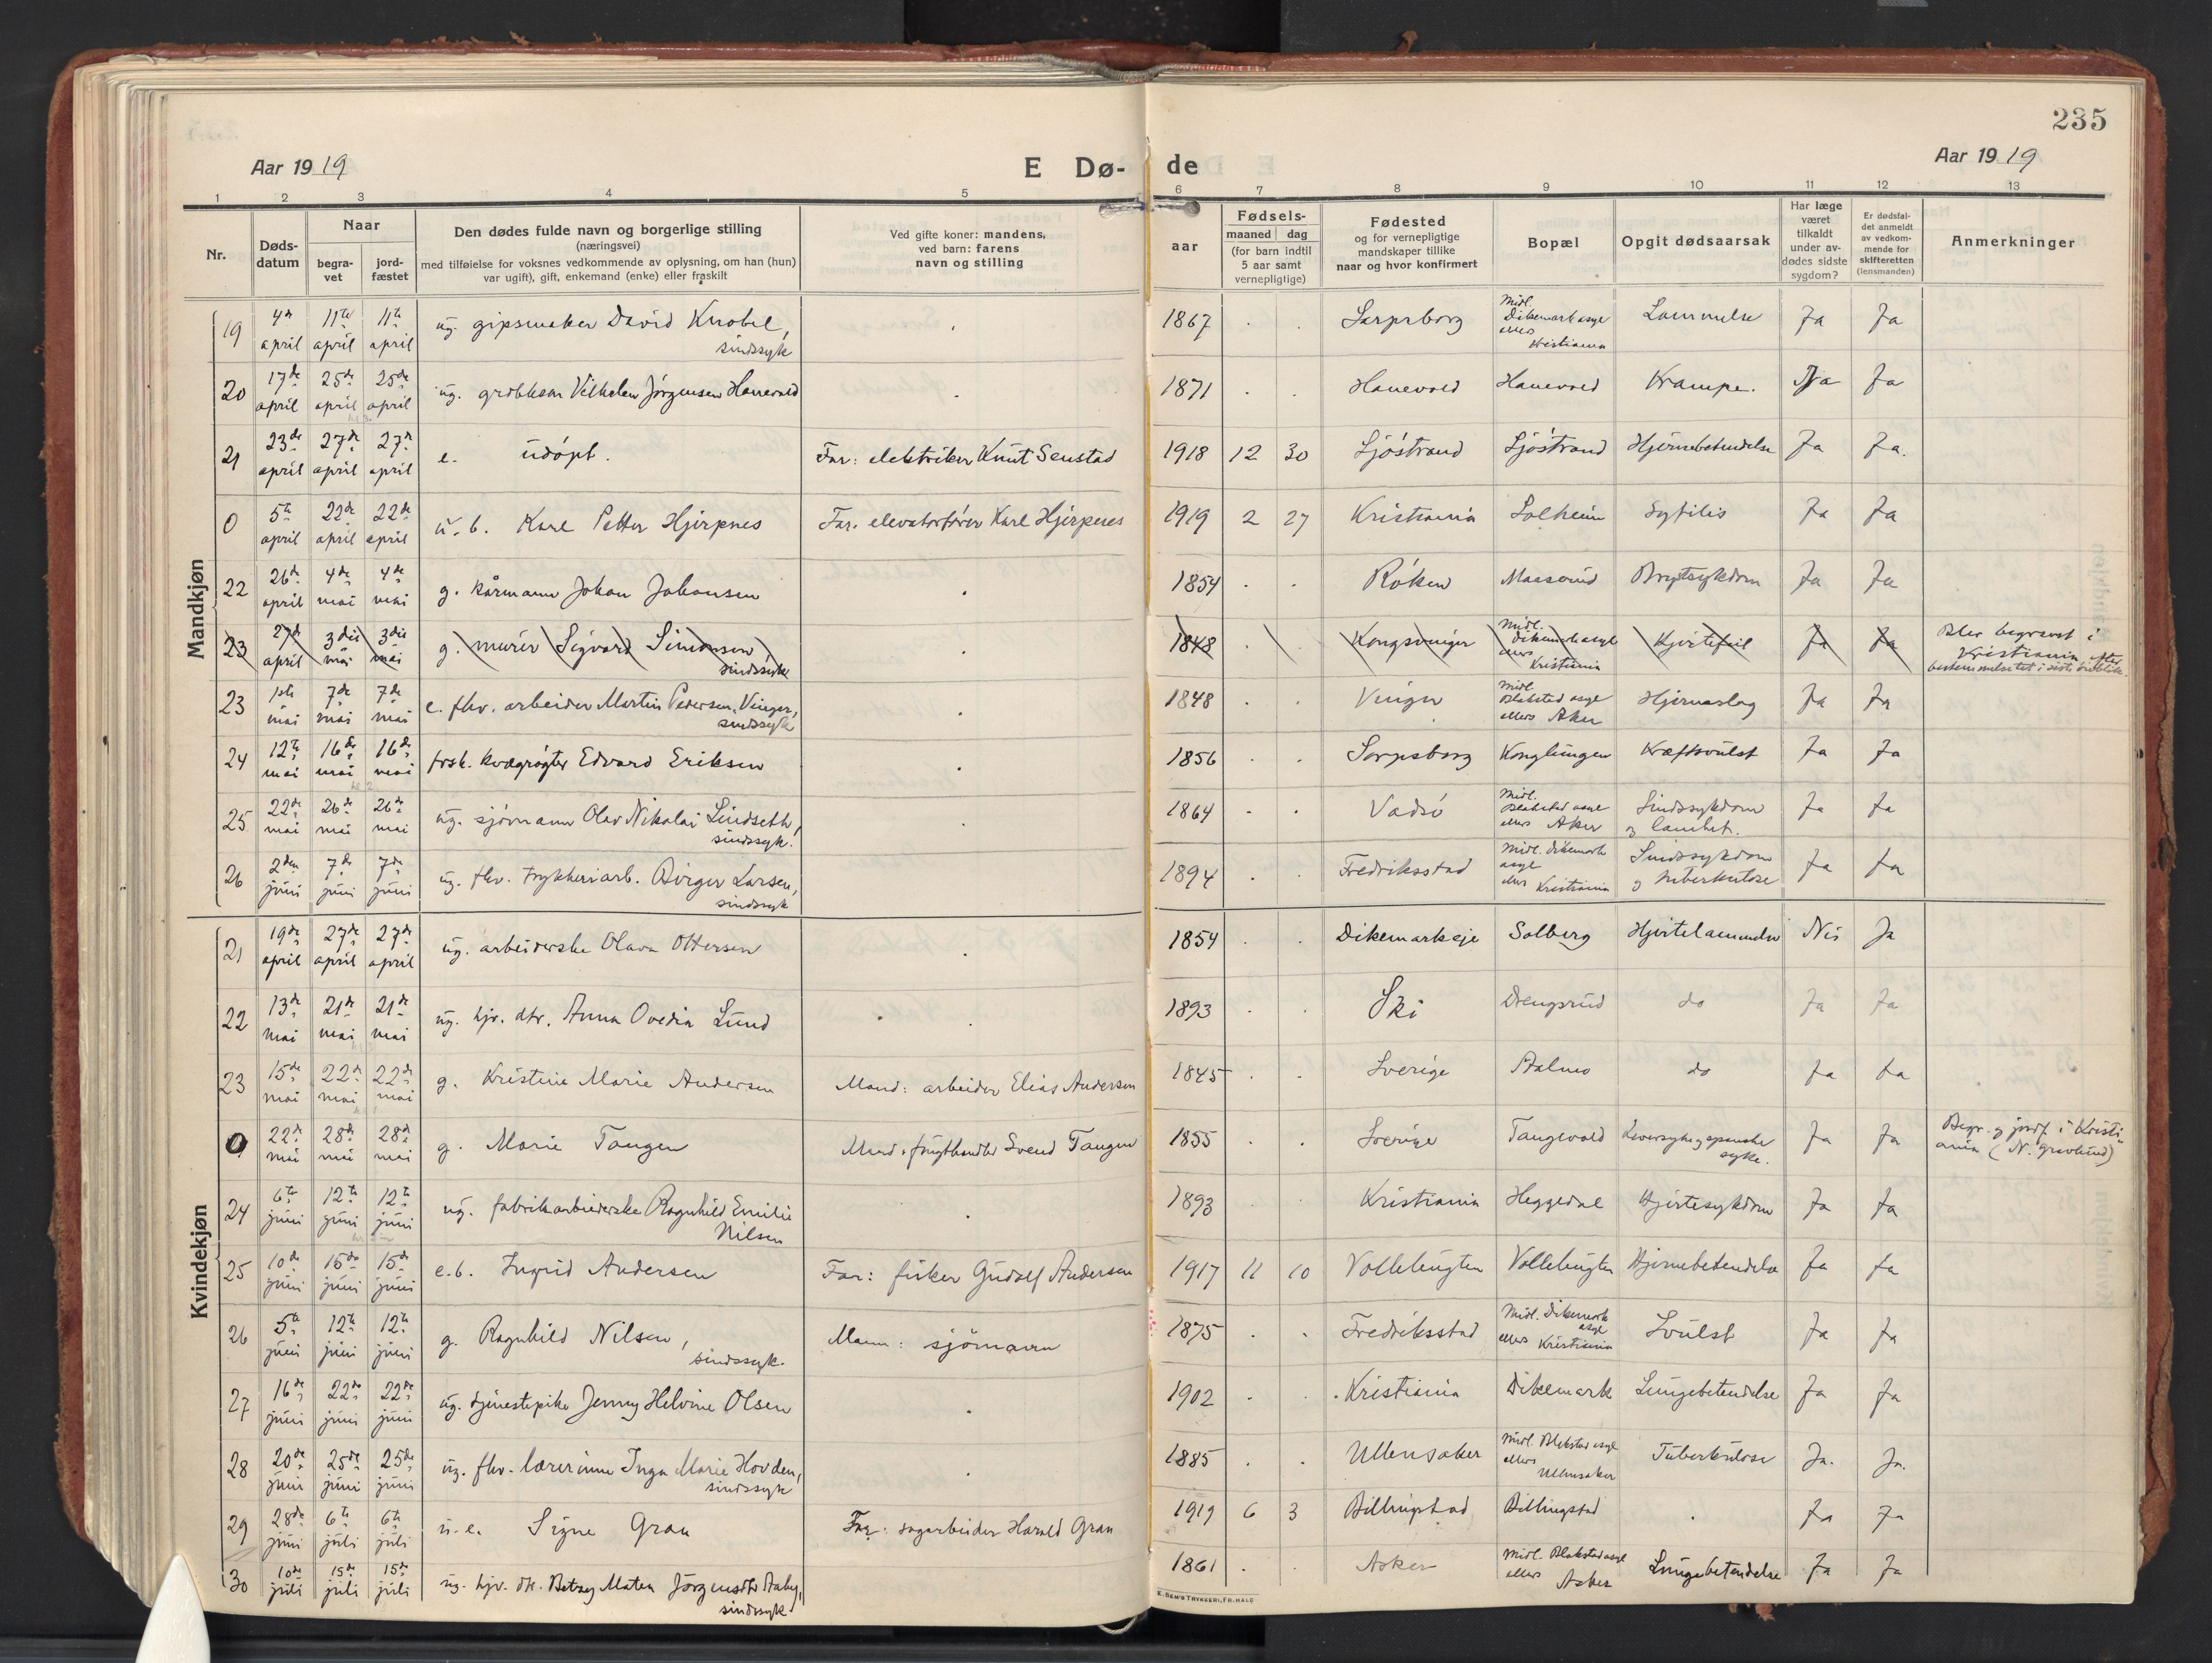 235
Aar 1919 E Dø- de Aar 1919
1 2 3 4 5 6 7 8 9 10 11 12 13
Nr. Døds-datum Naar begra-vet jord-fæstet Den dødes fulde navn og borgerlige stilling (næringsvei) med tilføielse for voksnes vedkommende av oplysning, om han (hun) var ugift), gift, enkemand (enke) eller fraskilt Ved gifte koner: mandens, ved barn: farens navn og stilling aar Fødsels- maaned dag (for barn indtil 5 aar samt vernepligtige) Fødested og for vernepligtige mandskaper tillike naar og hvor konfirmert Bopæl Opgit dødsaarsak Har læge været tilkaldt under av-dødes sidste sygdom? Er dødsfal-det anmeldt av vedkom-mende for skifteretten (lensmanden) Anmerkninger
Mandkjøn
19 4de april 11te april 11te april ug. gipsmaker David Knobel, sindssyk 1867 Sarpsborg Midl. Dikemark asyl ellers Kristiania Lammelse Ja Ja
20 17de april 25de april 25de april ug. Vilhelm Jørgensen Hanevold 1871 Hanevold Hanevold Krampe. Ja Ja
21 23de april 27de april 27de april e. udöpt. Far: elektriker Knut Senstad 1918 12 30 Sjöstrand Sjöstrand Hjernebetendelse Ja Ja.
0 5te april 22de april 22de april u. b. Karl Petter Hjerpnes Far. elevatorfører Karl Hjerpenes 1919 2 27 Kristiania Solheim Syfilis Ja Ja
22 26de april 4de mai 4de mai g. kårmann Johan Johansen 1854 Röken Masserud Brystsykdom Ja Ja
23 27de april 3die mai 3die mai g. murer Sigvard Simonsen sindssyk 1848 Kongsvinger Midl. Dikemark asyl ellers Kristiania Hjertefeil Ja Ja Blev begravet i Kristiania efter bestemmelse tat i siste öieblik.
23 1ste mai 7de mai 7de mai e. fhv. arbeider Martin Pedersen, Vinger, sindssyk 1848 Vinger Midl. Blakstad asyl ellers Aker Hjerneslag Ja Ja
24 12te mai 16de mai 16de mai frsk. kvægrøgter Edvard Eriksen 1856 Sarpsborg Konglungen Kræftsvulst Ja Ja
25 22de mai 26de mai 26de mai ug. sjömann Olav Nikolai Lindseth, sindssyk. 1864 Vadsö Midl. Blakstad asyl ellers Aker Sindssykdom og lamhet. Ja Ja
26 2den juni 7de juni 7de juni ug. fhv. trykkeriarb. Birger Larsen, sindssyk 1894 Fredriksstad Midl. Dikemark asyl ellers Kristiania Sindssykdom og tuberkulose Ja Ja
Kvindekjøn
21 19de april 27de april 27de april ug. arbeiderske Olava Ottersen 1854 Dikemarkeje Solberg Hjertelammelse Nei Ja
22 13de mai 21de mai 21de mai ug. hjv. dtr. Anna Ovedia Lund 1893 Ski Drengsrud do Ja Ja
23 15de mai 22de mai 22de mai g. Kristine Marie Andersen Mand: arbeider Elias Andersen 1845 Sverige Aalmo do Ja Ja
0 22de mai 28de mai 28de mai g. Marie Tangen Mand: frugthandler Svend Tangen 1855 Sverige Tangevold Leversyke og spanske syke. Ja Ja Begr. og jordf. i Kristiania (N. gravlund)
24 6te juni 12te juni 12te juni ug. fabrikarbeiderske Ragnhild Emilie Nilsen 1893 Kristiania Heggedal Hjertesykdom Ja Ja
25 10de juni 15de juni 15de juni e.b. Ingrid Andersen Far: fisker Gudolf Andersen 1917 11 10 Vollebugten Vollebugten Hjernebetendelse Ja Ja
26 5te juni 12te juni 12te juni g. Ragnhild Nilsen, sindssyk. Mann: sjömann 1875 Fredriksstad Midl. Dikemark asyl ellers Kristiania Svulst Ja Ja
27 16de juni 22de juni 22de juni ug. tjenestepike Jenny Helvine Olsen 1902 Kristiania Dikemark Lungebetendelse Ja Ja
28 20de juni 25de juni 25de juni ug. fhv. lærerinne Inga Marie Hovden, sindssyk 1885 Ullensaker Midl. Blakstad asyl ellers Ullensaker Tuberkulose Ja. Ja.
29 28de juni 6te juli 6te juli u.e. Signe Gran Far: sagarbeider Harald Gran 1919 6 3 Billingstad Billingstad Ja Ja
30 10de juli 15de juli 15de juli ug. hjv. dtr. Betzey Maten Jörgensdtr Aaby, sindssyk 1861 Asker Midl. Blakstad asyl ellers Asker Lungebetendelse Ja Ja
E. SEM'S TRYKKERI, FR.HALD